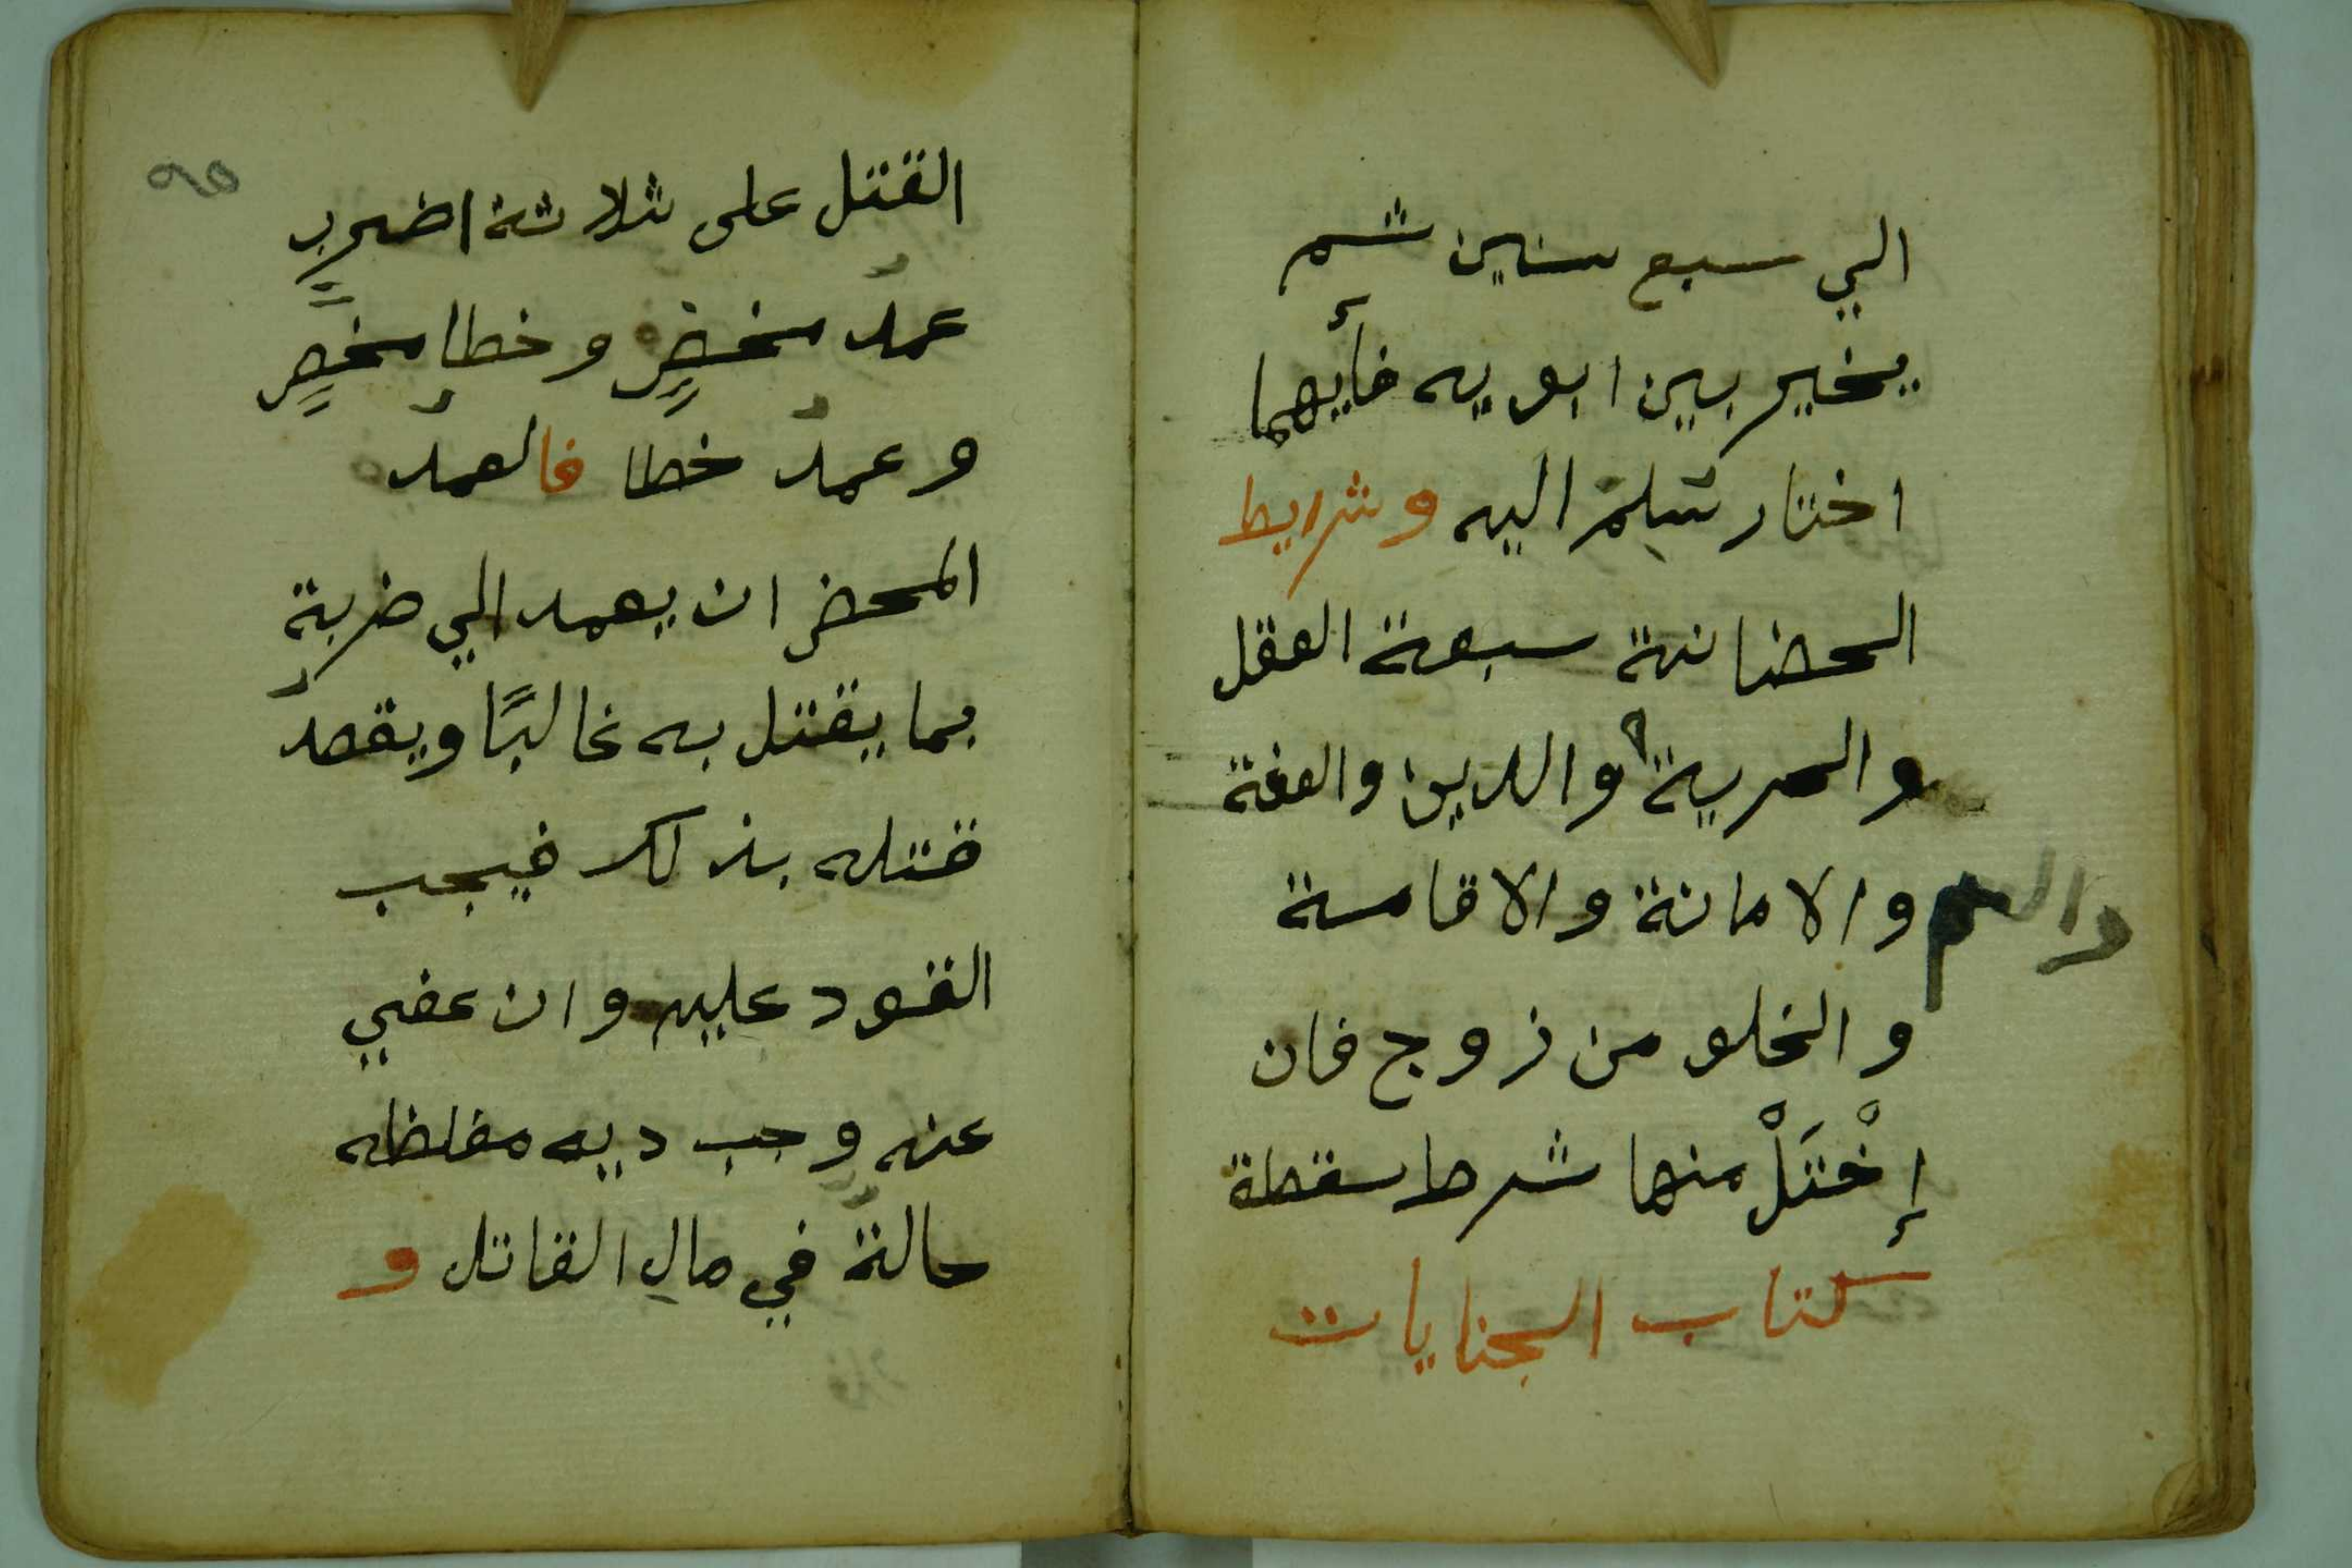 الي سبع سنين ثم
يخير بين ابويه فأيهما
اختار سلم اليه وشرايط
الحضانة سبعة العقل
والحرية والدين والعفة
والامانة والاقامة
والخلو من زوج فان
إخْتَلْ منها شرط سقطة
كتاب الجنايات
القتل على ثلاثة اضرب
عمد محضٍ وخطا محضٍ
وعمد خطا فالعمد
المحض ان يعمد الي ضربة
بما يقتل به غالبًا ويقصد
قتله بذلك فيجب
القود عليه وان عفي
عنه وجب ديه مغلظه
حالة في مالِ القاتل و